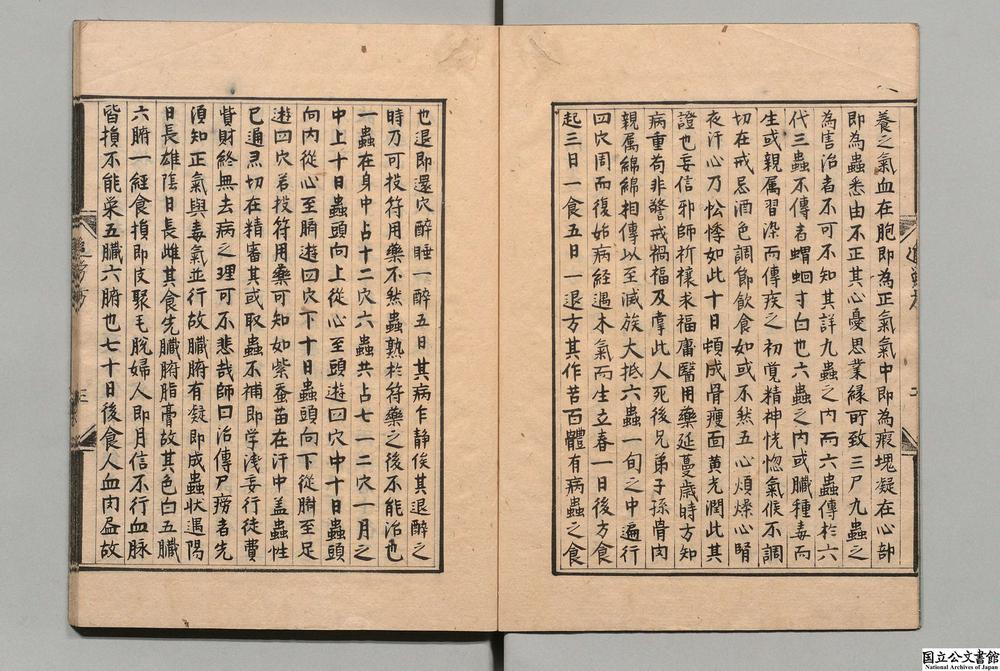 養之氣血在胞即為正氣氣中即為瘕塊凝在心部
即為蟲悉由不正其心憂思業緣所致三尸九蟲之
為害治者不可不知其詳九蟲之内而六蟲傳於六
代三蟲不傳者蝟蛔寸白也六蟲之内或臟種毒而
生或親属習染而傳疾之初覚精神恍惚氣候不調
切在戒忌酒色調節飲食如或不然五心煩燥心腎
夜汗心乃忪悸如此十日頓成骨瘦面黄光潤此其
證也妄信邪師祈禳求福庸醫用藥延蔓歳時方知
病重苟非警戒禍福及掌此人死後兄弟子孫骨肉
親属綿綿相傳以至滅族大抵六蟲一旬之中遍行
四穴周而復始病經遇木氣而生立春一日後方食
起三日一食五日一退方其作苦百體有病蟲之食
也退即還穴醉睡一醉五日其病乍静俟其退醉之
時乃可投符用藥不然蟲熟於符藥之後不能治也
一蟲在身中占十二穴六蟲共占七一二穴一月之
中上十日蟲頭向上從心至頭遊四穴中十日蟲頭
向内從心至臍遊四穴下十日蟲頭向下從臍至足
遊四穴若投符用藥可知如紫蚕苗在汗中盖蟲性
已通灵切在精審其或取蟲不補即学淺妄行徒費
貲財終無去病之理可不悲哉師曰治傳尸癆者先
須知正氣與毒氣並行故臟腑有凝即成蟲状遇陽
日長雄陰日長雌其食先臟腑脂膏故其色白五臟
六腑一經食損即皮聚毛脱婦人即月信不行血脉
皆損不能栄五臟六腑也七十日後食人血肉盡故
三
国立公文書館
National Archives of Japan